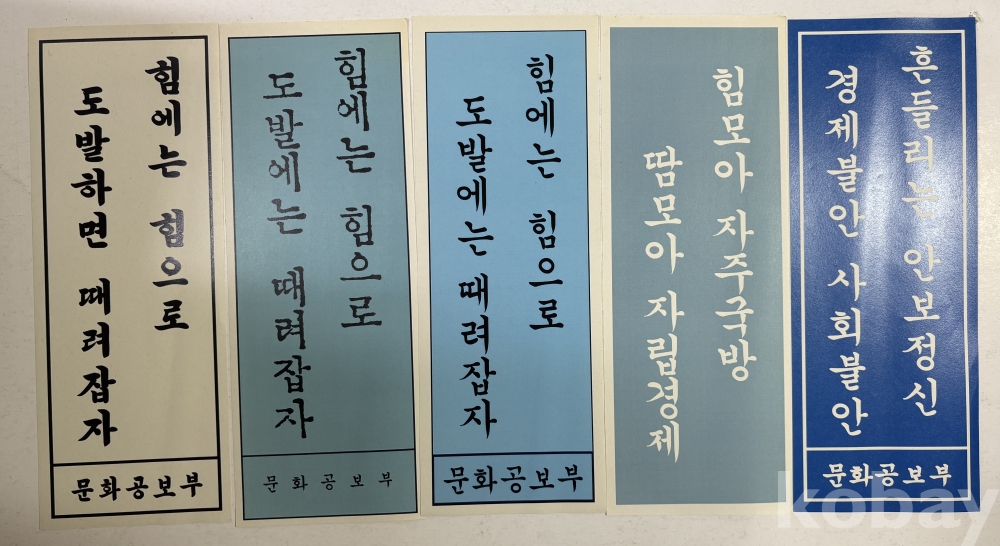 힘에는 힘으로
도발하면 때려잡자
문화공보부
힘에는 힘으로
도발에는 때려잡자
문화공보부
힘에는 힘으로
도발에는 때려잡자
문화공보부
힘모아 자주국방
땀모아 자립경제
흔들리는 안보정신
경제불안 사회불안
문화공보부
kobay